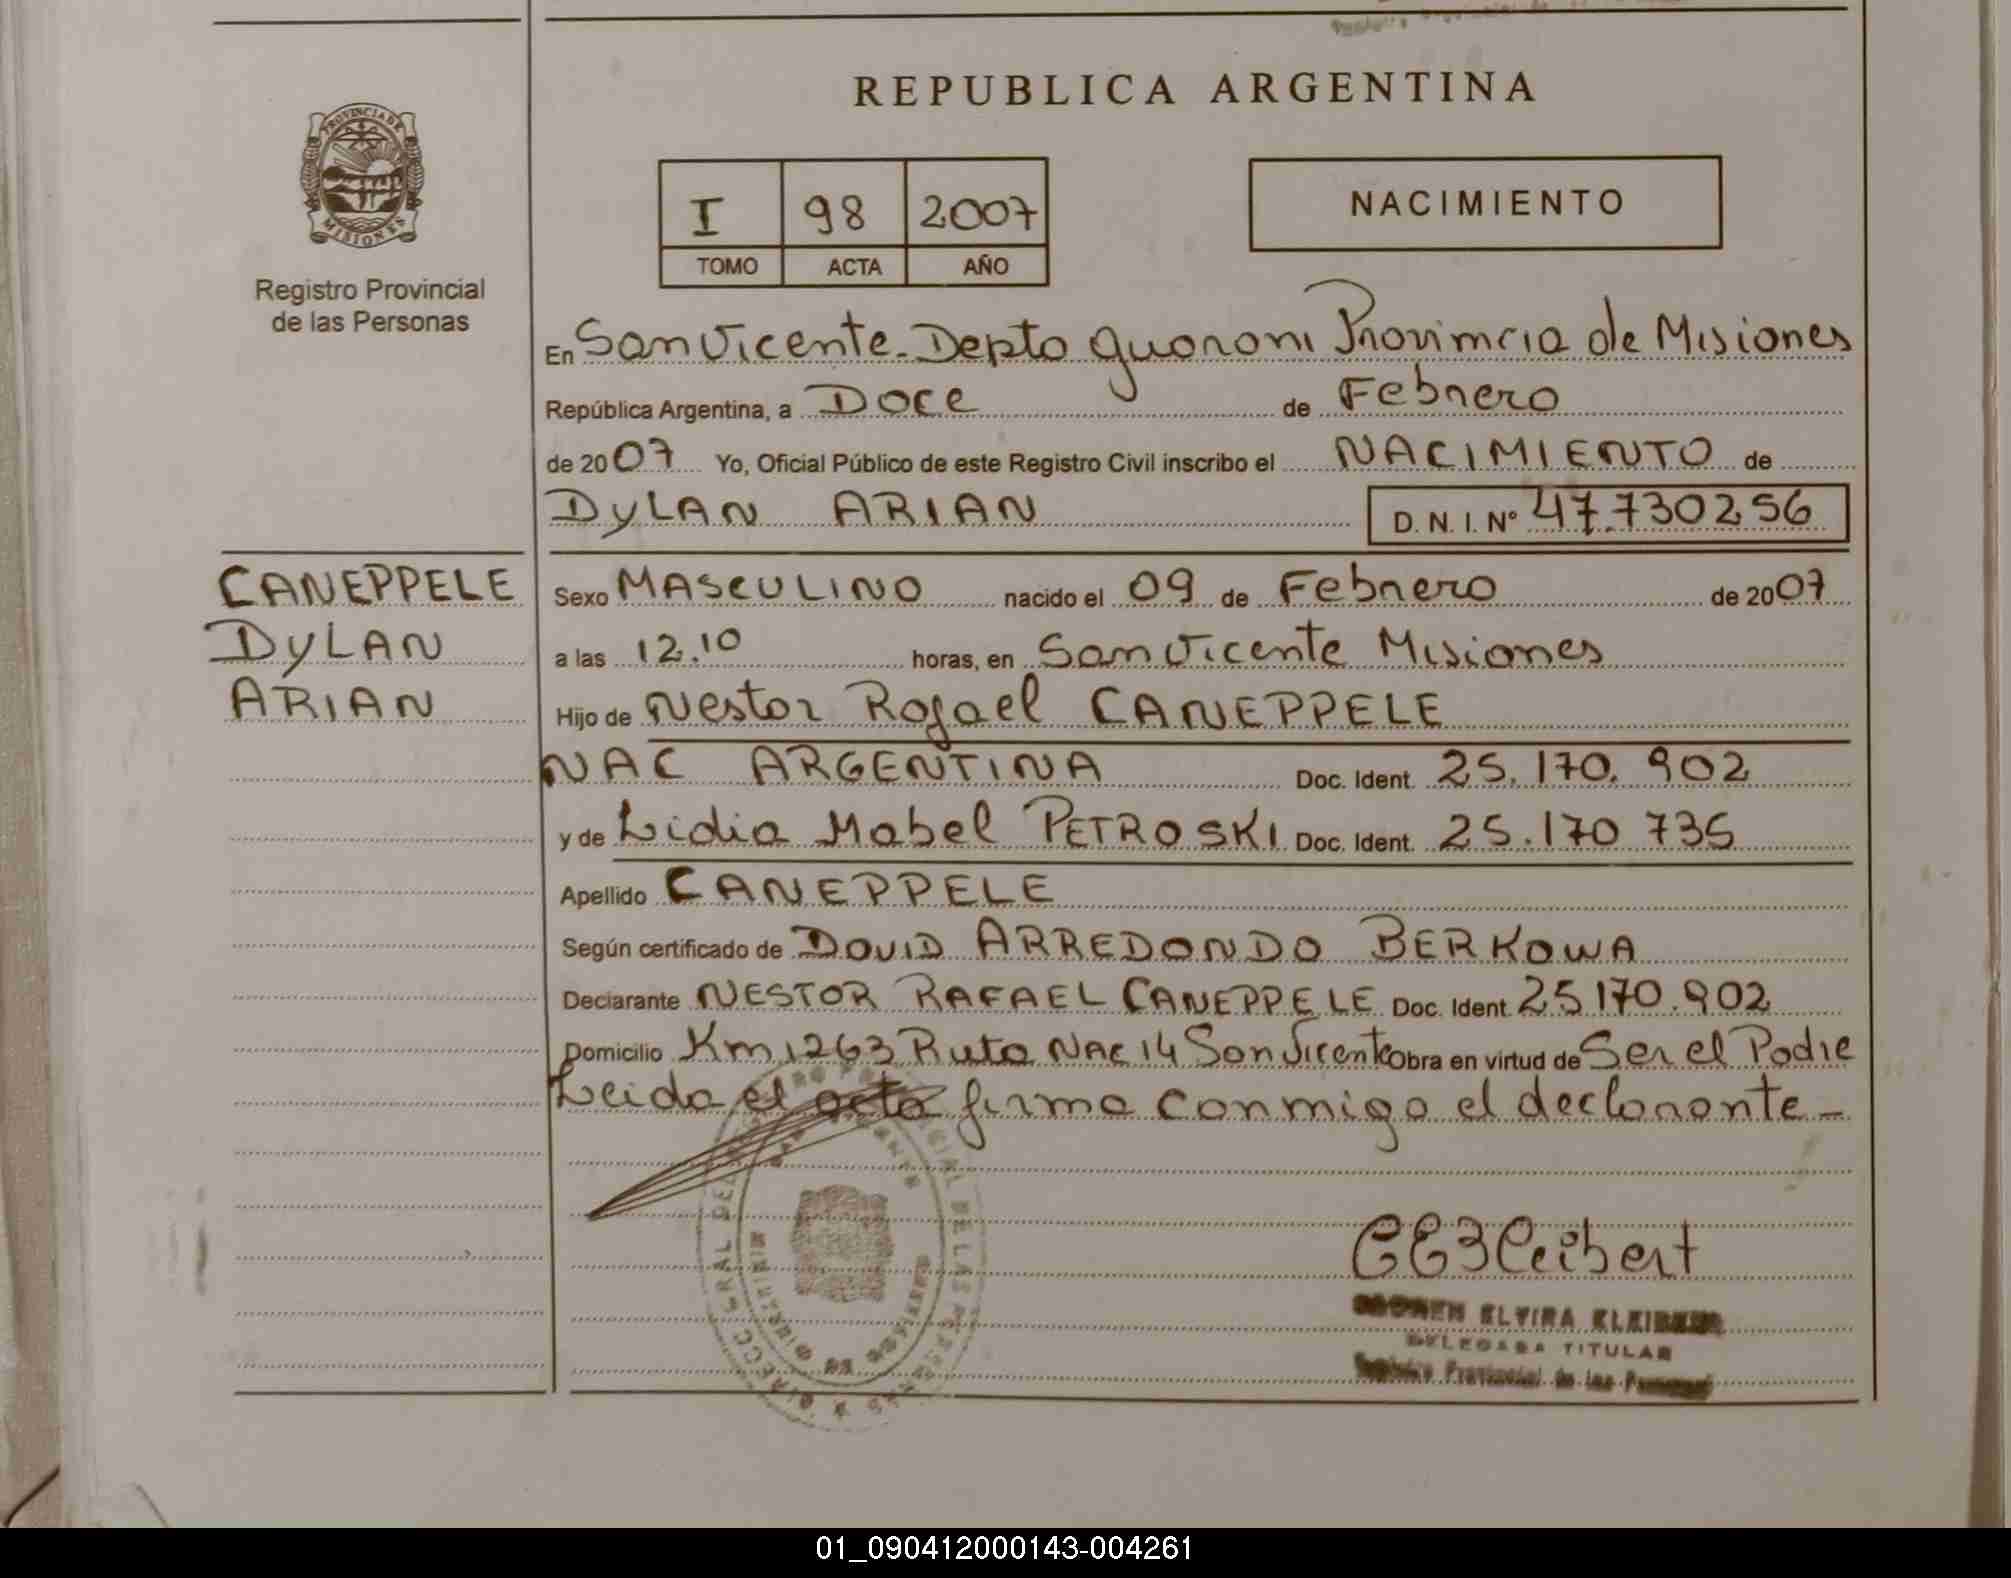 REPUBLICA ARGENTINA
PROVINCIA DE
MISIONES
Registro Provincial
de las Personas
I 98 2007
TOMO ACTA AÑO
NACIMIENTO
En San Vicente. Depto Guarani Provincia de Misiones
República Argentina, a Doce de Febrero
de 2007 Yo, Oficial Público de este Registro Civil inscribo el NACIMIENTO de
DYLAN ARIAN D. N. I. Nº 47.730256
CANEPPELE
DYLAN
ARIAN
Sexo MASCULINO nacido el 09 de Febrero de 2007
a las 12.10 horas, en San Vicente Misiones
Hijo de Nestor Rafael CANEPPELE
NAC ARGENTINA Doc. Ident. 25.170.902
y de Lidia Mabel PETROSKI Doc. Ident. 25.170 735
Apellido CANEPPELE
Según certificado de DOVID ARREDONDO BERKOWA
Declarante NESTOR RAFAEL CANEPPELE Doc. Ident. 25170.902
Domicilio Km 1263 Ruta NAC 14 San Vicente Obra en virtud de Ser el Padre
Leida el acta firma conmigo el declarante -
ELVIRA
DELEGADA TITULAR
Provincial de las
01_090412000143-004261